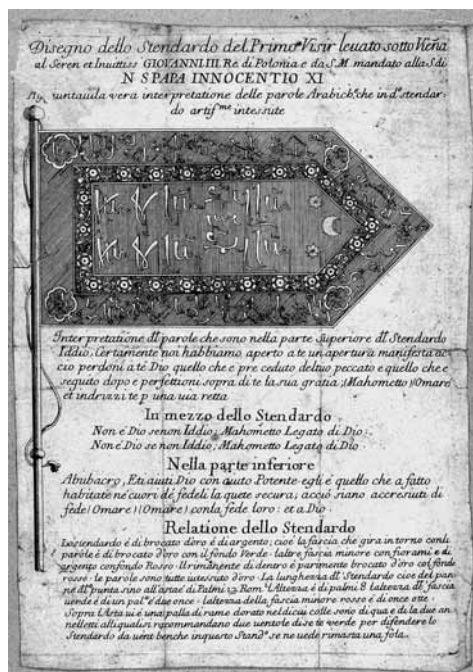 Disegno dello Stendardo del Primo Visir leuato sotto Viena
al Seren et Inuittiss GIOVANNI III Re di Polonia e da S.M. mandato alla S. di
N S PAPA INNOCENTIO XI
untauila vera interpretatione delle parole Arabich. che in d.º stendar.
do artif.me intessute
Interpretatione dl parole che sono nella parte Superiore dl Stendardo
Iddio, Certamente noi habbiamo aperto a te un apertura manifesta ac
cio perdoni a te Dio quello che e pre ceduto del tuo peccato e quello che e
seguito dopo e perfettioni sopra di te la sua gratia (Mahometto) (Omare
et indrizzi te p una uia retta
In mezzo dello Stendardo
Non e Dio se non Iddio; Mahometto Legato di Dio:
Non e Dio se non Iddio; Mahometto Legato di Dio:
Nella parte inferiore
Abubacro, Eti aiuti Dio con aiuto Potente egli e quello che a fatto
habitate ne cuori de fedeli la quete secura; acciò siano accresciuti di
fede (Omare) (Omare) con la fede loro: et a Dio.
Relatione dello Stendardo
Lo stendardo é di brocato d'oro é di argento; cioe la fascia che gira intorno con li
parole é di brocato d'oro con il fondo Verde. laltre fascia minore con fiorami e di
argento con fondo Rosso. Il rimanente di dentro é parimente brocato d'oro col fondo
rosso. le parole sono tutte intessuto d'oro. La lunghezza dl Stendardo cioe del pan
ne dl punta sino all'astae di Palmi 12 Rom. l'Altezza é di palmi 8 la tezza dl fascia
uerde e di un pal. e due once. la tezza della fascia minore rosso é di once otte
Sopra l'Asta ui é una palla di rame dorato nel di cui colle sono di qua e di la due an
nelletti alli quali si raccomandano due uentole di se te verde per difendere lo
Stendardo da uent benche in questo Stand.º se ne uede rimasta una sola.